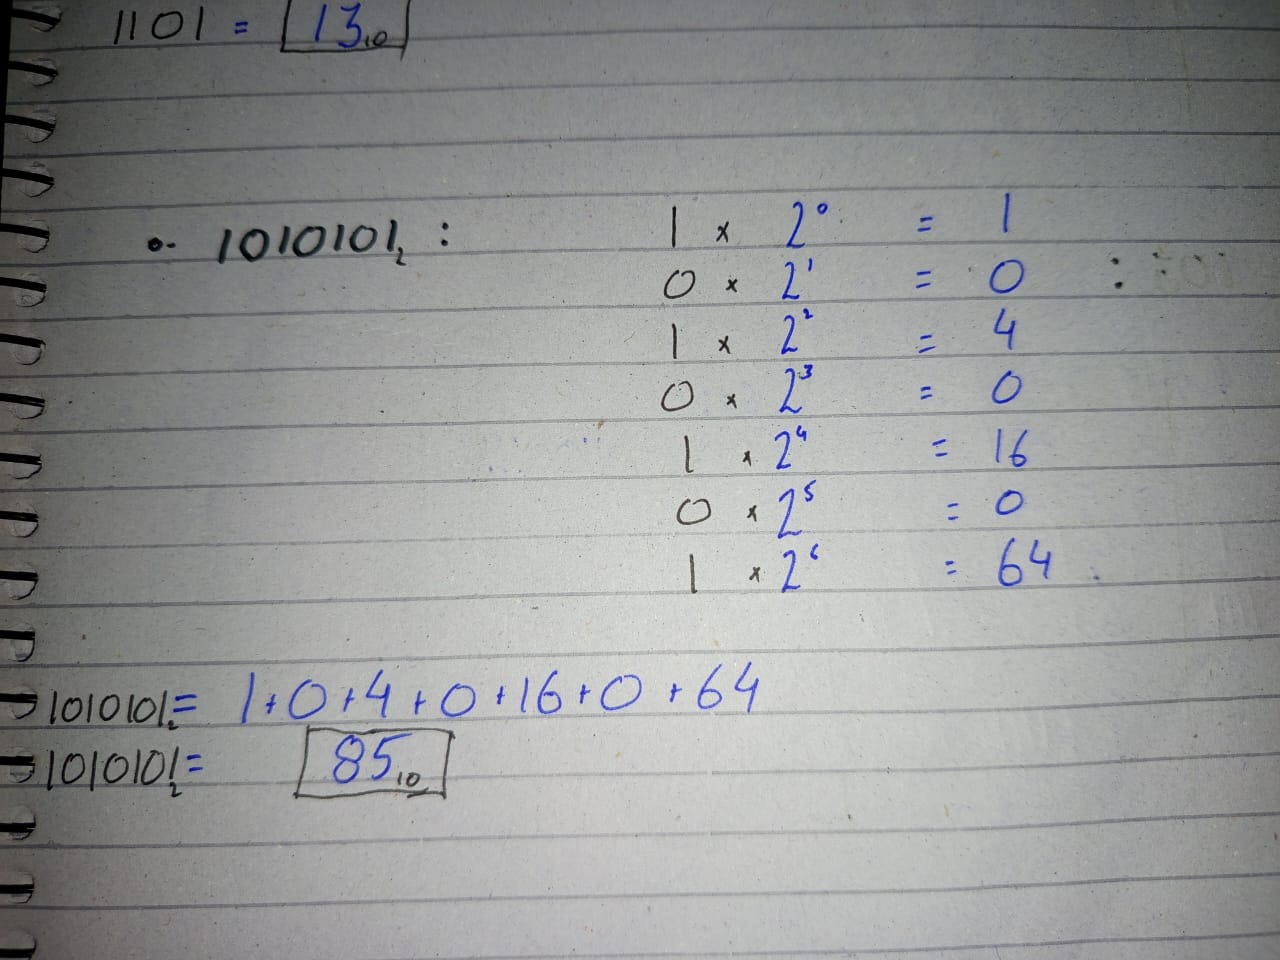 1101 = 13₁₀
1010101₂ :
1 x 2⁰ = 1
0 x 2¹ = 0
1 x 2² = 4
0 x 2³ = 0
1 x 2⁴ = 16
0 x 2⁵ = 0
1 x 2⁶ = 64
1010101₂ = 1+0+4+0+16+0+64
1010101₂ = 85₁₀